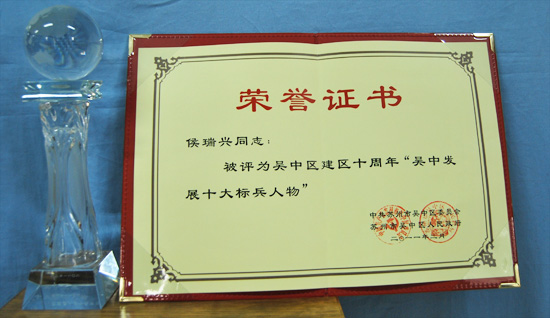 荣誉证书
侯瑞兴同志：
被评为吴中区建区十周年“吴中发
展十大标兵人物”
中共苏州市吴中区委员会
苏州市吴中区人民政府
二〇一一年二月